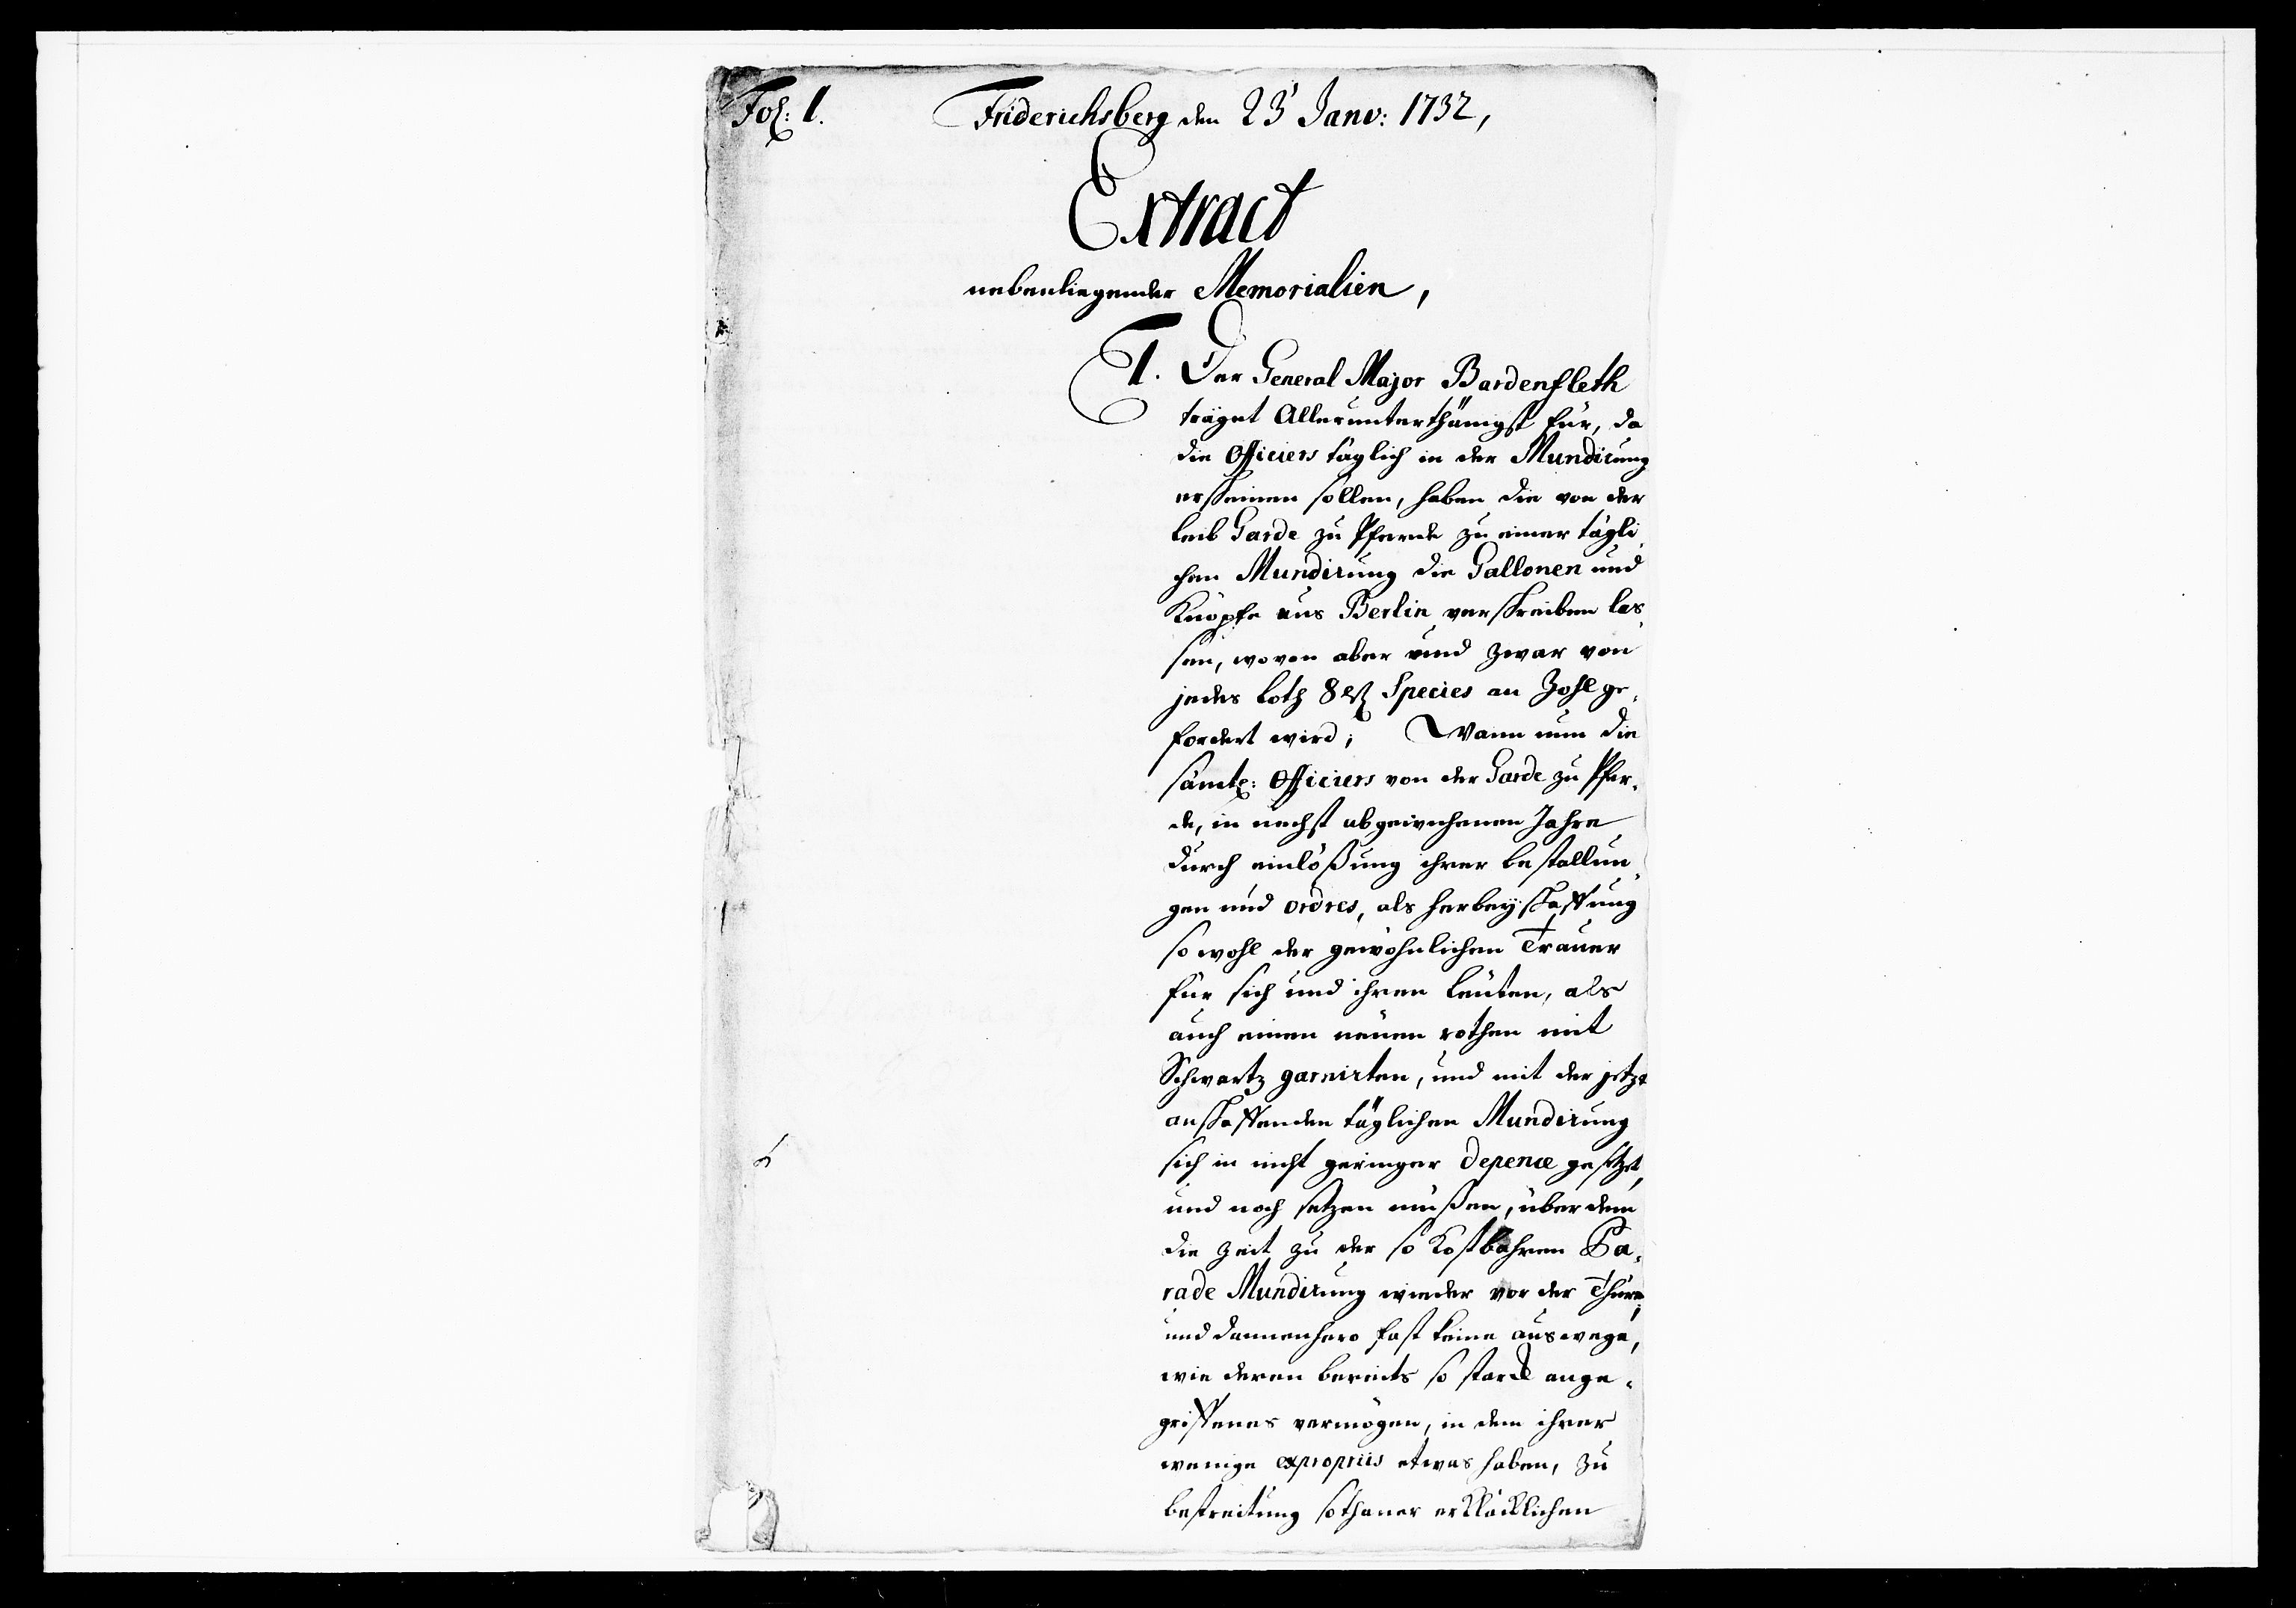 Fol: 1.
Friderichsberg den 23t Janv: 1732,
Extract
nebenliegender Memorialien,
1. Der General Major Bardenfleth
träget Allerunterthänigst für, da
die Officiers täglich in der Mundirung
erscheinen sollen, haben die von der
Leib Garde zu Pferde zu einer tägli
chen Mundirung die Gallonen und
Knöpfe aus Berlin verschreiben las
sen, wovon aber und zwar von
jedes Loth 8 ß Species an Zoll ge-
fordert wird; Wann nun die
sämtl: Officiers von der Garde zu Pfer-
de, in nechst abgewichenen Jahre
durch einlößung ihrer bestallun-
gen und ordres, als herbeyschaffung
so wohl der gewöhnlichen Trauer
für sich und ihren Leuten, als
auch einen neuen rothen mit
Schwartz garnirten, und mit der jetzt
anschaffenden täglichen Mundirung
sich in nicht geringer depence gesetzet,
und noch setzen müßen, über dem
die Zeit zu der so kostbahren Pa-
rade Mundirung wieder vor der Thüre,
und dannenhero fast keine auswege,
wie deren bereits so starck ange-
griffenes vermögen, in dem ihrer
wenige ex propriis etwas haben, zu
bestreitung sothaner erkläcklichen